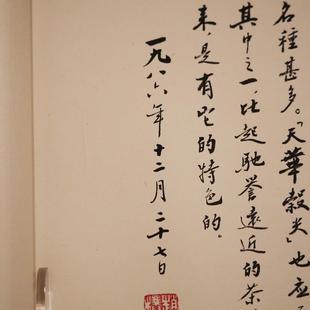 名種甚多。「天華穀尖」也应
其中之一，比起馳誉遠近的茶
来，是有它的特色的。
一九八六年十二月二十七日